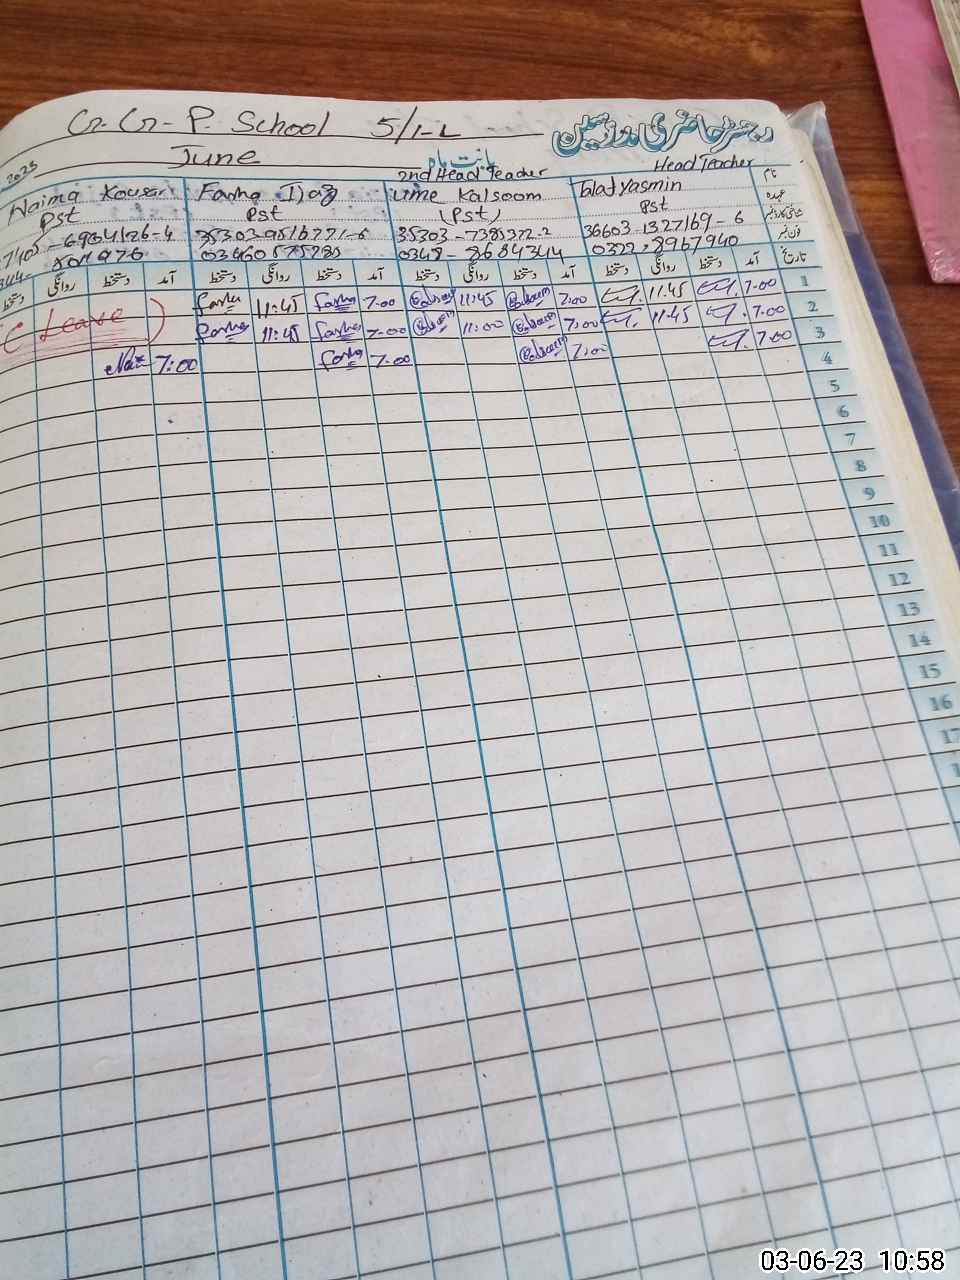 G. G. P. School 5/1-L رجسٹر حاضری مدرسین
2023 June بابت ماہ
2nd Head Teacher Head Teacher
Naima Kousar Farha Ijaz Ume Kalsoom Talat Yasmin نام
Pst Pst (Pst) Pst عہدہ
36603-1327169-6
0348-8684344 0322-8967940 فون نمبر
دستخط روانگی دستخط آمد دستخط روانگی دستخط آمد دستخط روانگی دستخط آمد دستخط روانگی دستخط آمد تاریخ
Farha 11:45 Farha 7.00 Kalsoom 11:45 Kalsoom 7:00 11.45 7.00 1
Leave Farha 11:45 Farha 7:00 Kalsoom 11:00 Kalsoom 7:00 11.45 7.00 2
7:00 Farha 7.00 Kalsoom 7:00 7.00 3
4
5
6
7
8
9
10
11
12
13
14
15
16
17
03-06-23 10:58